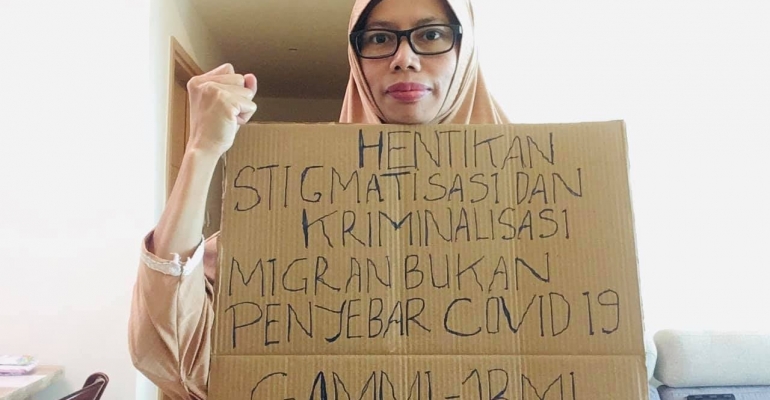 HENTIKAN
STIGMATISASI DAN
KRIMINALISASI
MIGRAN BUKAN
PENYEBAR COVID 19
GAMMI-JBMI